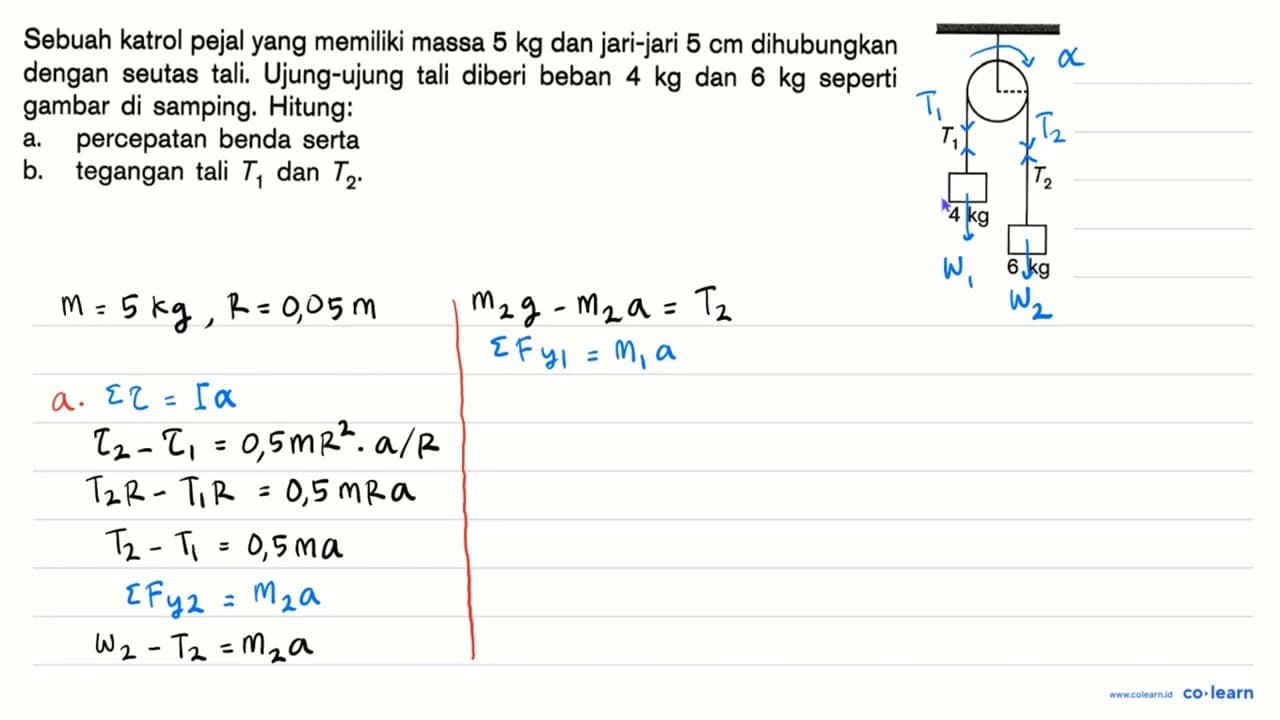 Sebuah katrol pejal yang memiliki massa 5 kg dan jari-jari 5 cm dihubungkan
dengan seutas tali. Ujung-ujung tali diberi beban 4 kg dan 6 kg seperti
gambar di samping. Hitung:
a. percepatan benda serta
b. tegangan tali T₁ dan T₂.
α
T₁
T₂
T₁
T₂
4 kg
W₁
6 kg
W₂
m = 5 kg, R = 0,05 m
a. Στ = Iα
τ₂ - τ₁ = 0,5 mR². a/R
T₂R - T₁R = 0,5 mRa
T₂ - T₁ = 0,5 ma
ΣFy₂ = m₂a
W₂ - T₂ = m₂a
m₂g - m₂a = T₂
ΣFy₁ = m₁a
www.colearn.id co·learn